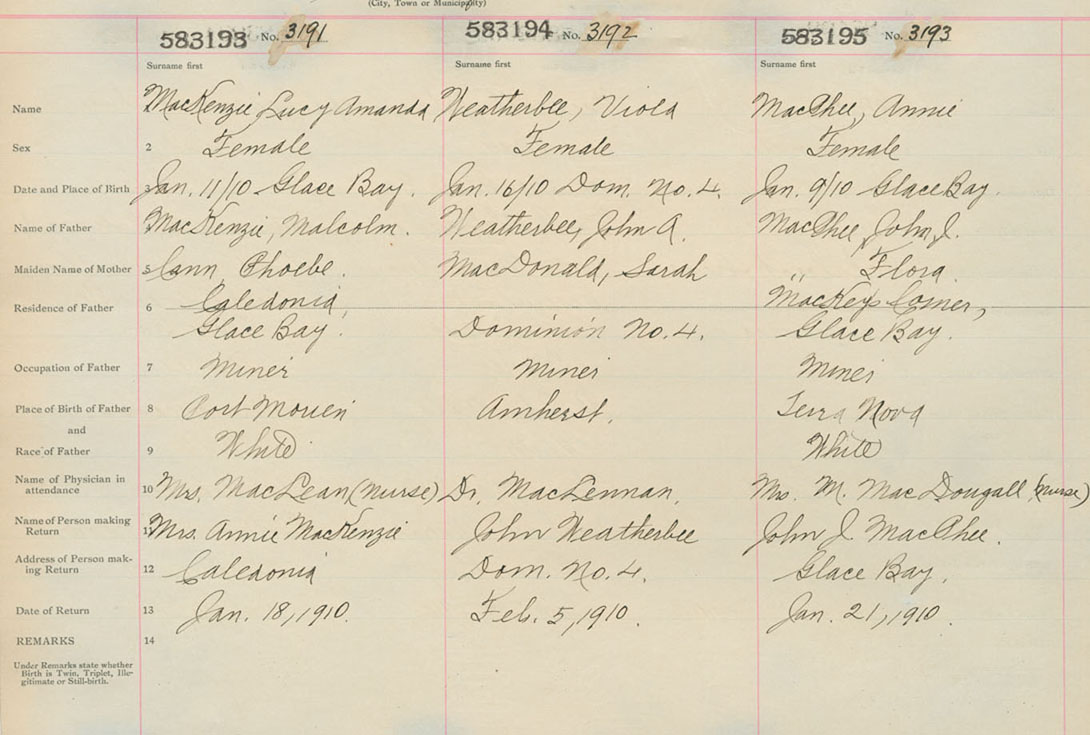 (City, Town or Municipality)
583193 No. 3191 583194 No. 3192 583195 No. 3193
Surname first Surname first Surname first
Name MacKenzie Lucy Amanda Weatherbee, Viola MacPhee, Annie
Sex 2 Female Female Female
Date and Place of Birth 3 Jan. 11/10 Glace Bay. Jan. 16/10 Dom. No. 4. Jan. 9/10 Glace Bay.
Name of Father MacKenzie, Malcolm. Weatherbee, John A. MacPhee, John J.
Maiden Name of Mother 5 Cann, Phoebe. MacDonald, Sarah " Flora.
Residence of Father 6 Caledonia, MacKeys Corner,
Glace Bay. Dominion No. 4. Glace Bay.
Occupation of Father 7 Miner Miner Miner
Place of Birth of Father 8 Port Morien Amherst. Terra Nova
and
Race of Father 9 White White
Name of Physician in
attendance 10 Mrs. MacLean (nurse) Dr. MacLennan. Mrs. M. MacDougall (nurse)
Name of Person making
Return 11 Mrs. Annie MacKenzie John Weatherbee John J. MacPhee.
Address of Person mak-
ing Return 12 Caledonia Dom. No. 4. Glace Bay.
Date of Return 13 Jan. 18, 1910. Feb. 5, 1910. Jan. 21, 1910.
REMARKS 14
Under Remarks state whether
Birth is Twin, Triplet, Ille-
gitimate or Still-birth.